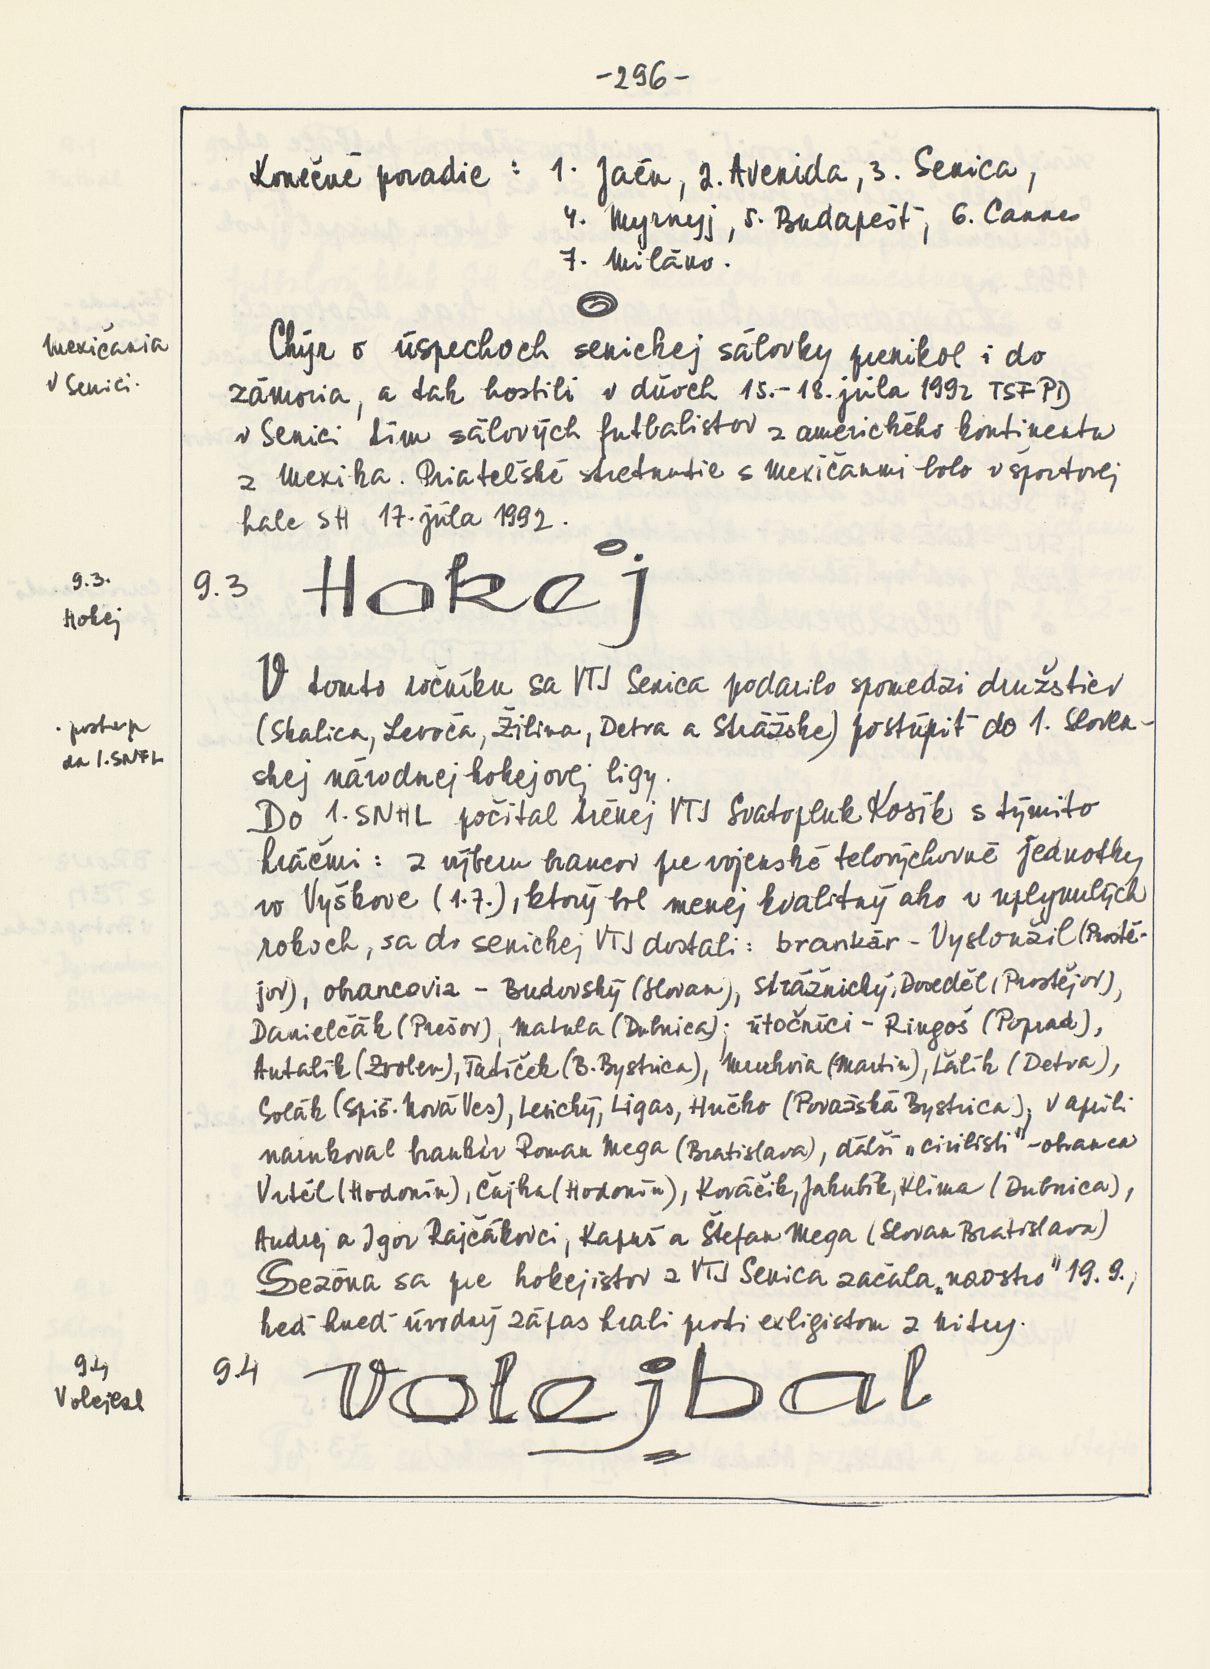 -296-
Konečné poradie : 1. Jaén, 2. Avenida, 3. Senica,
4. Myrnyj, 5. Budapešť, 6. Cannes
7. Miláno.
Mexičania
v Senici.
Chýr o úspechoch senickej sálovky prenikol i do
zámoria, a tak hostili v dňoch 15.-18. júla 1992 TSF PD
v Senici tím sálových futbalistov z amerického kontinentu
z Mexika. Priateľské stretnutie s Mexičanmi bolo v športovej
hale SH 17. júla 1992.
9.3.
Hokej
9.3 Hokej
V tomto ročníku sa VTJ Senica podarilo spomedzi družstiev
(Skalica, Levoča, Žilina, Detva a Strážske) postúpiť do 1. Sloven-
skej národnej hokejovej ligy.
- postup
do 1. SNHL
Do 1. SNHL počítal tréner VTJ Svatopluk Kosík s týmito
hráčmi : z výberu brancov pre vojenské telovýchovné jednotky
vo Vyškove (1.7.), ktorý bol menej kvalitný ako v uplynulých
rokoch, sa do senickej VTJ dostali: brankár - Vyslonžil (Prostě-
jov), obrancovia - Budovský (Slovan), Strážnický, Doseděl (Prostějov),
Danielčák (Prešov), Matula (Dubnica); útočníci - Ringoš (Poprad),
Antalík (Zvolen), Tatíček (B. Bystrica), Mrukvia (Martin), Lálik (Detva),
Solák (Spiš. Nová Ves), Lenický, Ligas, Hučko (Považská Bystrica), v apríli
narukoval brankár Roman Mega (Bratislava), ďalší „civilisti" - obranca
Vrtěl (Hodonín), Čajka (Hodonín), Kováčik, Jakubík, Klíma (Dubnica),
Andrej a Igor Rajčákovci, Kapuš a Štefan Mega (Slovan Bratislava)
Sezóna sa pre hokejistov z VTJ Senica začala „naostro" 19.9.,
keď hneď úvodný zápas hrali proti exligistom z Nitry.
9.4
Volejbal
9.4 Volejbal